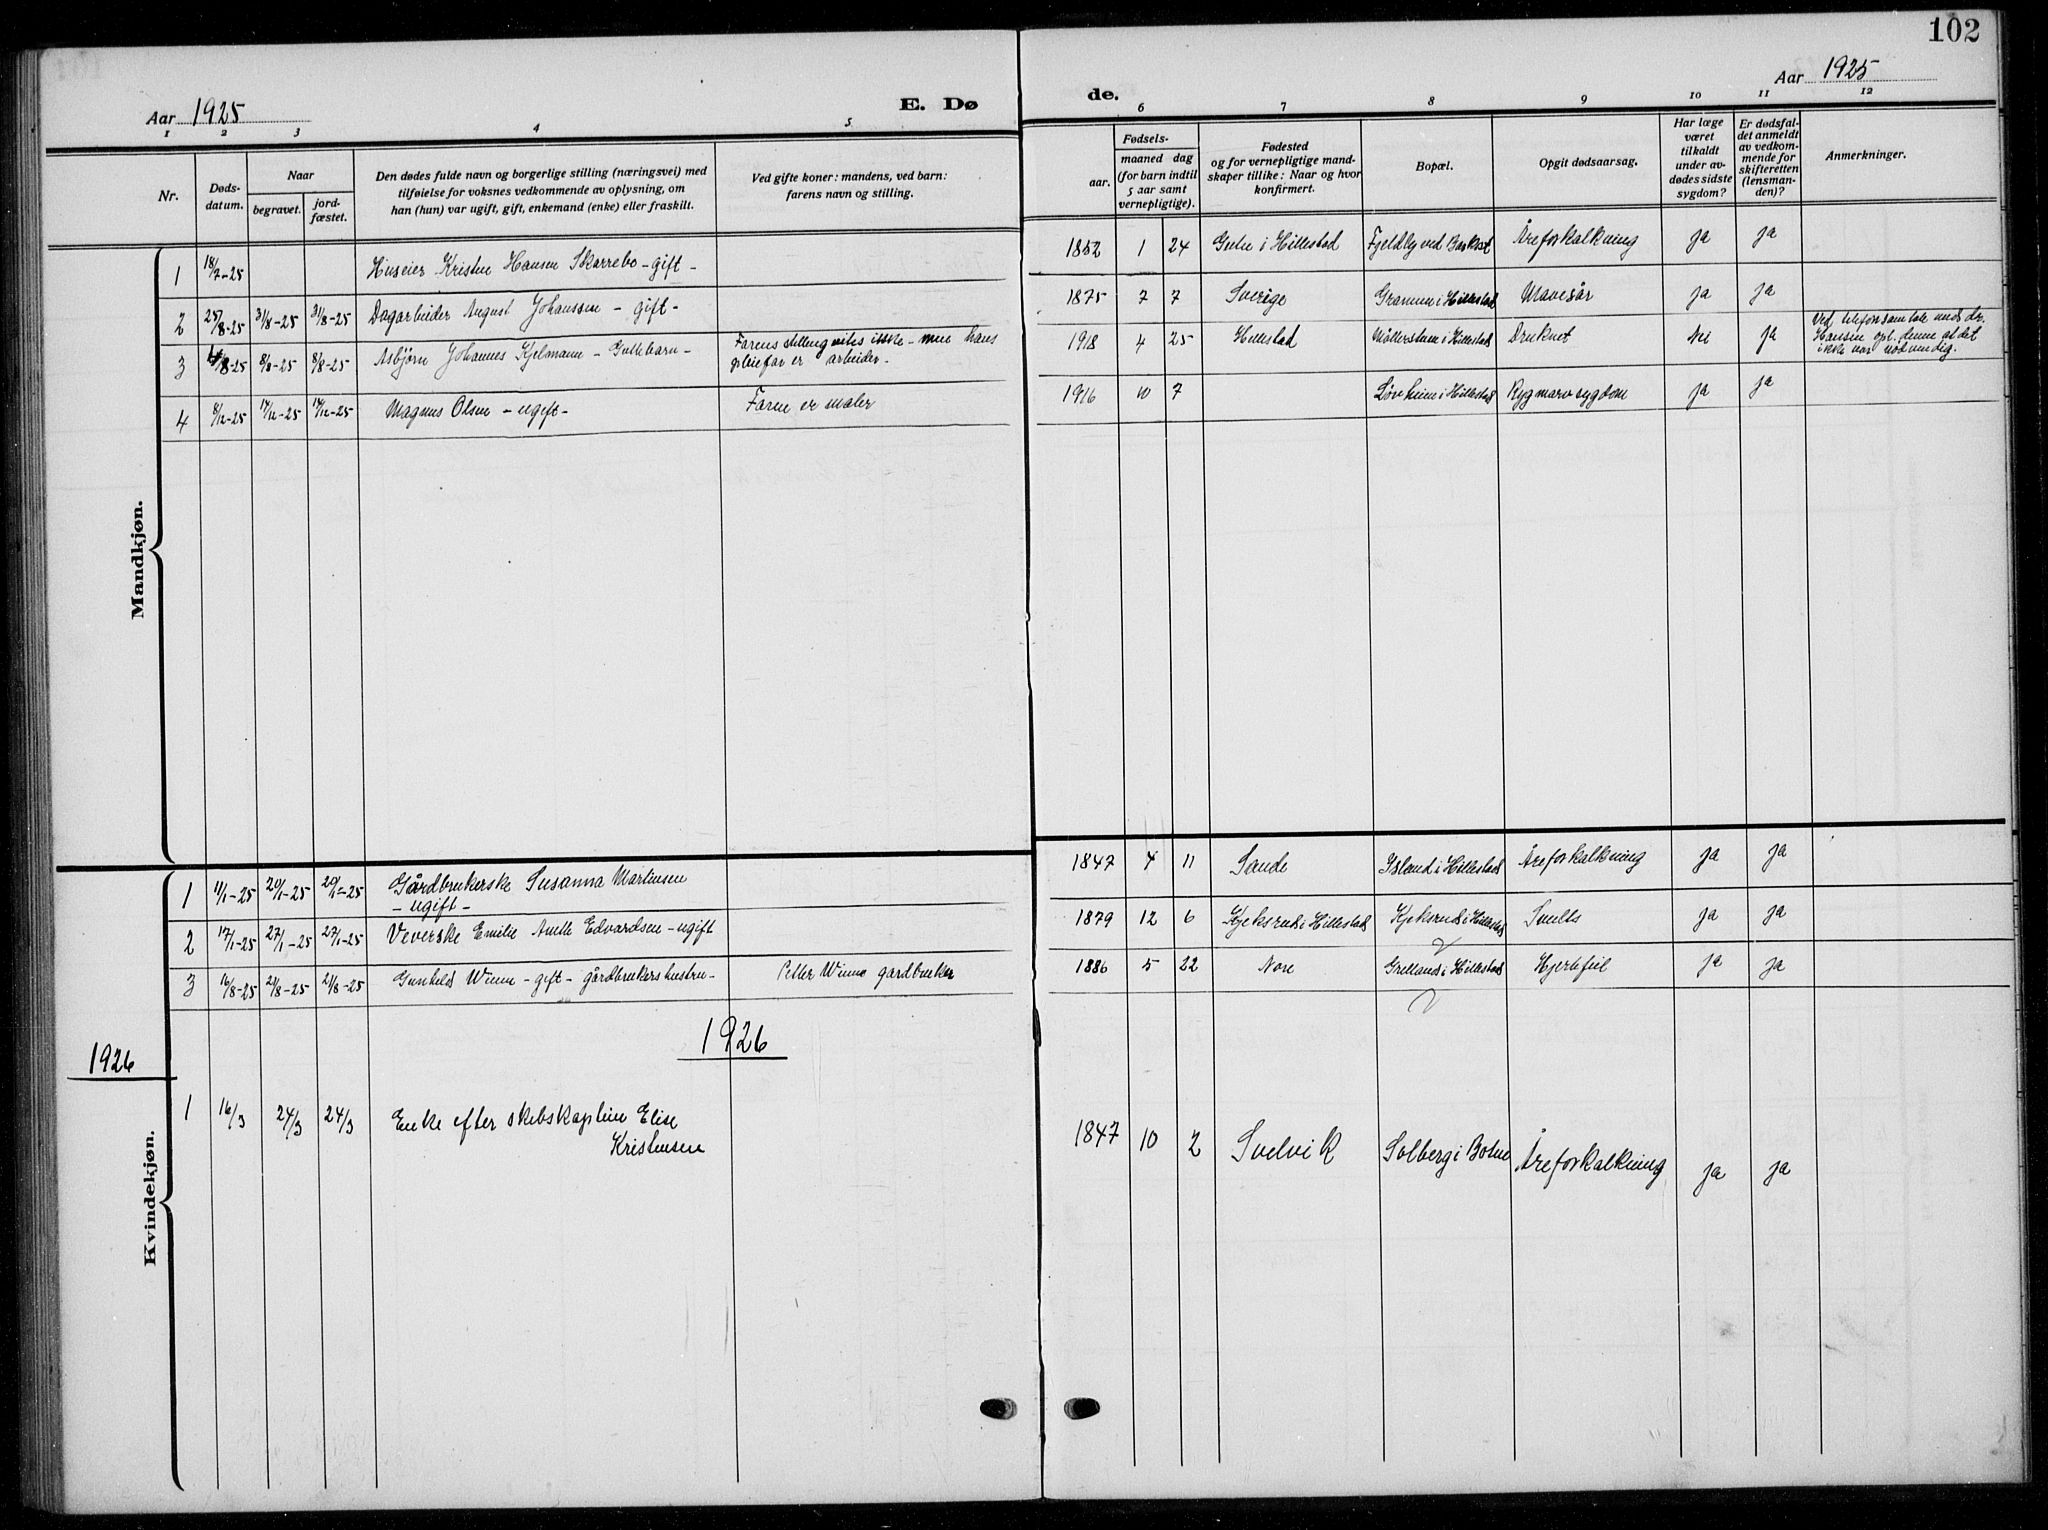 102
Aar 1925
E. Dø
de.
Aar 1925
1 2 3 4 5 6 7 8 9 10 11 12
Nr.
Døds-
datum.
Naar
begravet.
jord-
fæstet.
Den dødes fulde navn og borgerlige stilling (næringsvei) med
tilføielse for voksnes vedkommende av oplysning, om
han (hun) var ugift, gift, enkemand (enke) eller fraskilt.
Ved gifte koner: mandens, ved barn:
farens navn og stilling.
Fødsels-
aar.
maaned dag
(for barn indtil
5 aar samt
vernepligtige).
Fødested
og for vernepligtige mand-
skaper tillike: Naar og hvor
konfirmert.
Bopæl.
Opgit dødsaarsag.
Har læge
været
tilkaldt
under av-
dødes sidste
sygdom?
Er dødsfal-
det anmeldt
av vedkom-
mende for
skifteretten
(lensman-
den)?
Anmerkninger.
Mandkjøn.
1 18/7-25 Huseier Kristen Hansen Skarrebo - gift - 1852 1 24 i Hillestad Fjeldly ved Åreforkalkning ja ja
2 25/8-25 31/8-25 31/8-25 Dagarbeider August Johanssen - gift - 1875 7 7 Sverige i Hillestad Mavesår ja ja
3 4/8-25 8/8-25 8/8-25 Asbjørn Johannes Kjelmann - Guttebarn - Farens stilling vites ikke - men hans
pleiefar er arbeider - 1918 4 25 Hillestad i Hillestad Druknet Nei ja Ved telefonsamtale med dr.
Hansen opl. denne at det
ikke var nødvendig.
4 8/12-25 17/12-25 17/12-25 Magnus Olsen - ugift - Faren er maler 1916 10 7 Løvheim i Hillestad Rygmarvsygdom ja ja
Kvindekjøn.
1 11/1-25 20/1-25 20/1-25 Gårdbrukerske Susanna Martinsen
- ugift - 1847 4 11 Sande Island i Hillestad Åreforkalkning ja ja
2 17/1-25 27/1-25 27/1-25 Veverske Emilie Anette Edvardsen - ugift 1879 12 6 Kjeksrud i Hillestad Kjeksrud i Hillestad ja ja
3 16/8-25 21/8-25 21/8-25 Gunhild Winne - gift - gårdbrukers hustru - Petter Winne gardbruker 1886 5 22 Nore Grelland i Hillestad Hjertefeil ja ja
1926
1926
1 16/3 24/3 24/3 Enke efter skibskaptein Elise
Kristensen 1847 10 2 Svelvik Solberg i Botne Åreforkalkning ja ja